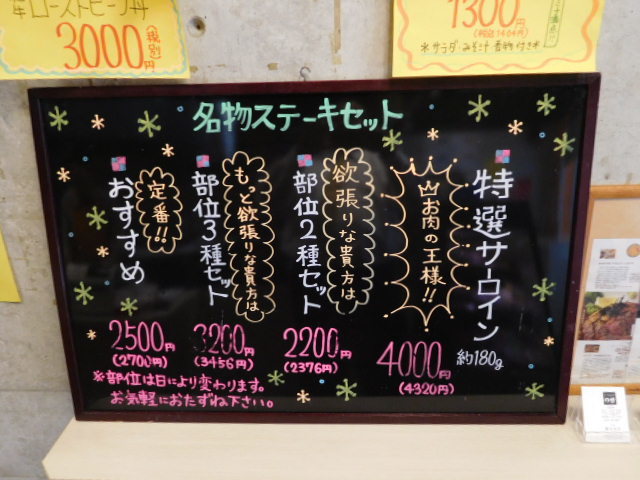 牛ローストビーフ丼
3000円
(税別)
1300円
(税込1404円)
※サラダ・みそ汁・香物 付き※
名物ステーキセット
特選サーロイン
約180g
お肉の王様!!
4000円
(4320円)
欲張りな貴方は
部位2種セット
2200円
(2376円)
もっと欲張りな貴方は
部位3種セット
3200円
(3456円)
定番!!
おすすめ
2500円
(2700円)
※部位は日により変わります。
お気軽におたずね下さい。